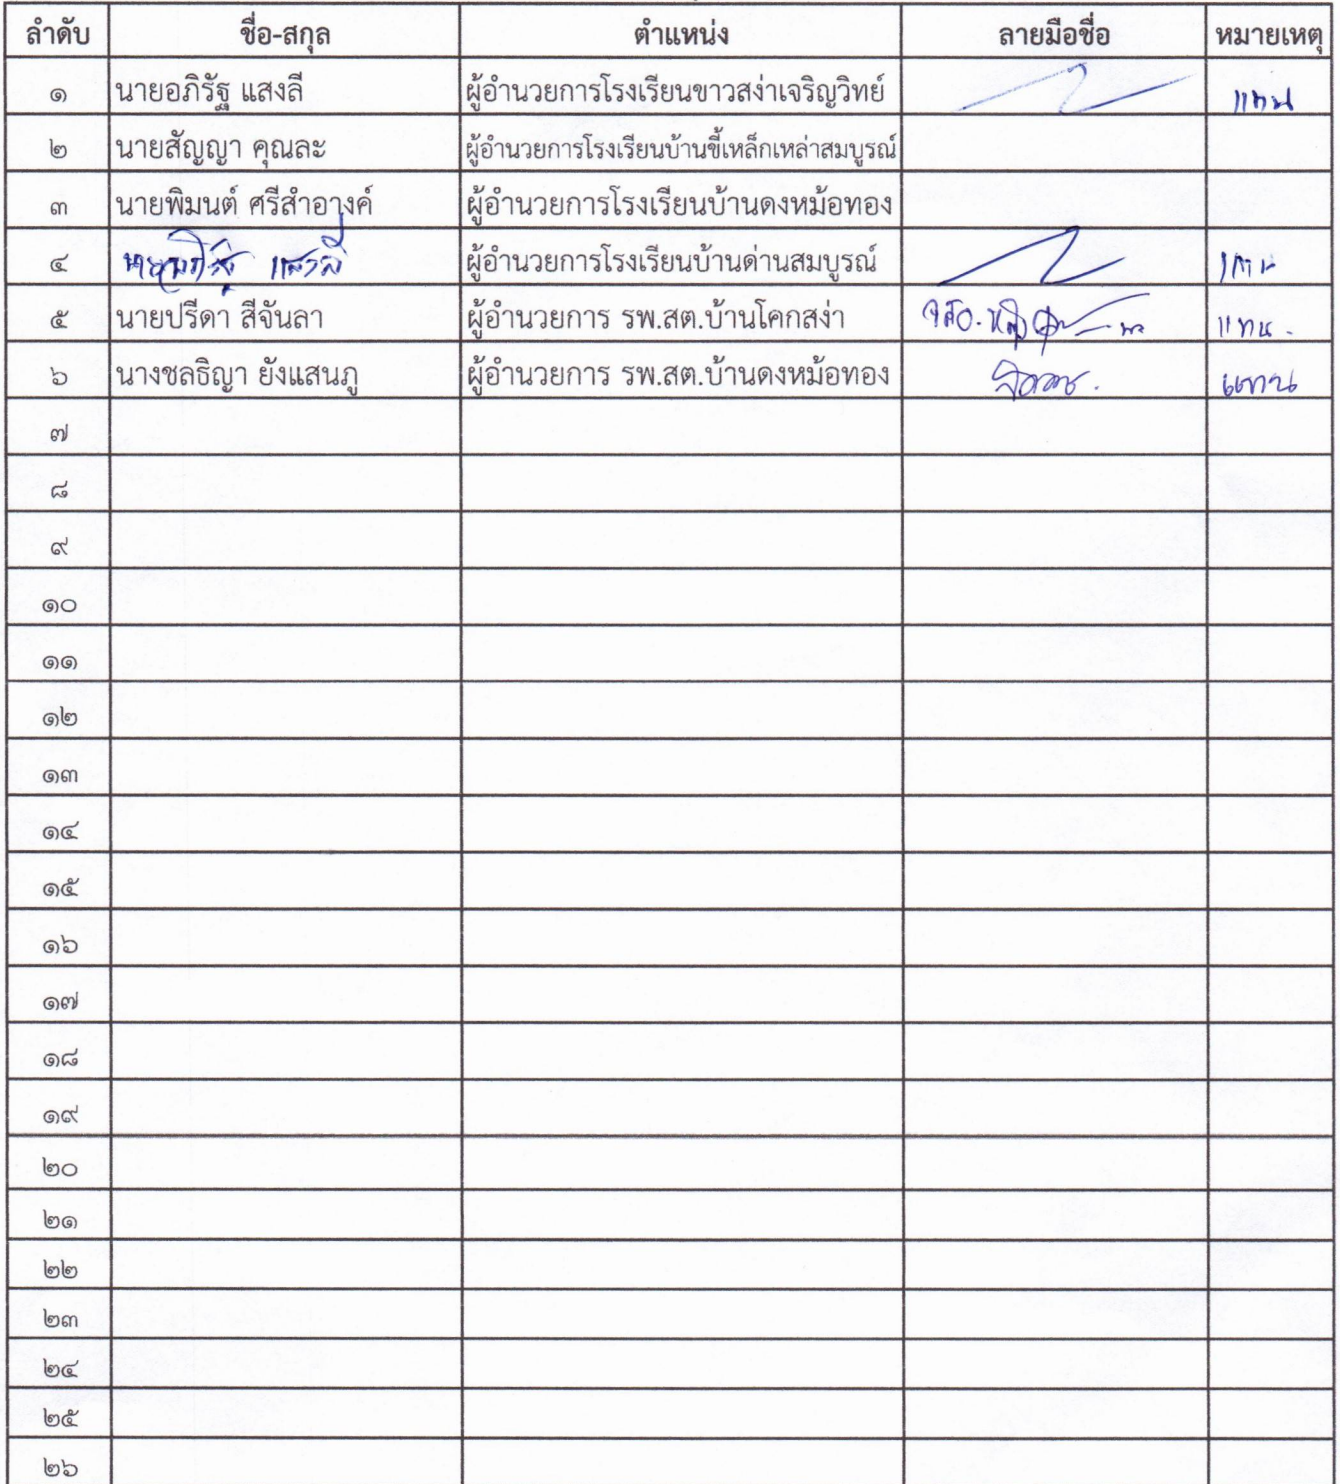 ลำดับ ชื่อ-สกุล ตำแหน่ง ลายมือชื่อ หมายเหตุ
๑ นายอภิรัฐ แสงลี ผู้อำนวยการโรงเรียนขาวสง่าเจริญวิทย์ แทน
๒ นายสัญญา คุณละ ผู้อำนวยการโรงเรียนบ้านขี้เหล็กเหล่าสมบูรณ์
๓ นายพิมนต์ ศรีสำอางค์ ผู้อำนวยการโรงเรียนบ้านดงหม้อทอง
๔ แสงลี ผู้อำนวยการโรงเรียนบ้านด่านสมบูรณ์ แทน
๕ นายปรีดา สีจันลา ผู้อำนวยการ รพ.สต.บ้านโคกสง่า แทน.
๖ นางชลธิญา ยังแสนภู ผู้อำนวยการ รพ.สต.บ้านดงหม้อทอง แทน
๗
๘
๙
๑๐
๑๑
๑๒
๑๓
๑๔
๑๕
๑๖
๑๗
๑๘
๑๙
๒๐
๒๑
๒๒
๒๓
๒๔
๒๕
๒๖